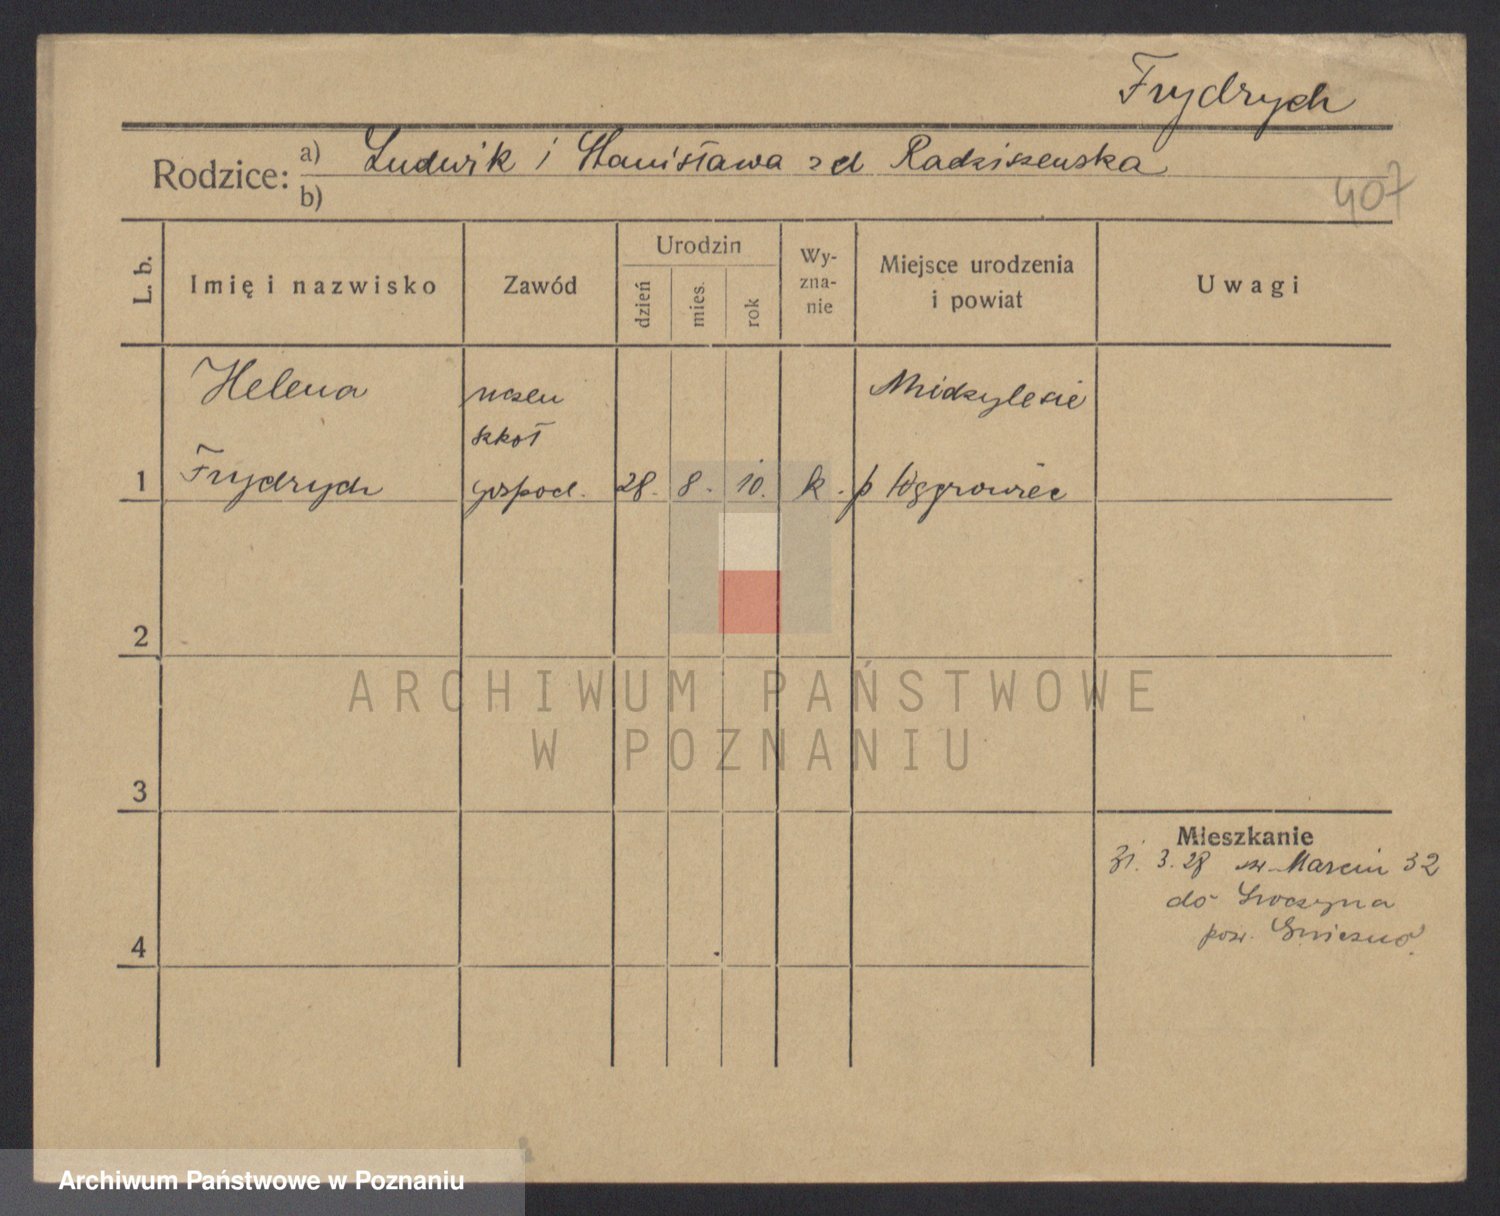 Frydrych
Rodzice: a) Ludwik i Stanisława zd Radziszewska
b)
407
L. b.
Imię i nazwisko
Zawód
Urodzin
dzień
mies.
rok
Wy-
zna-
nie
Miejsce urodzenia
i powiat
Uwagi
Helena
Frydrych
uczen
szkoł
gospod.
28. 8. 10.
k.
Midzylesie
p Wągrowiec
1
2
3
4
Mieszkanie
31. 3. 28 sw. Marcin 32
do
pow. Gniezno
ARCHIWUM PAŃSTWOWE
W POZNANIU
Archiwum Państwowe w Poznaniu